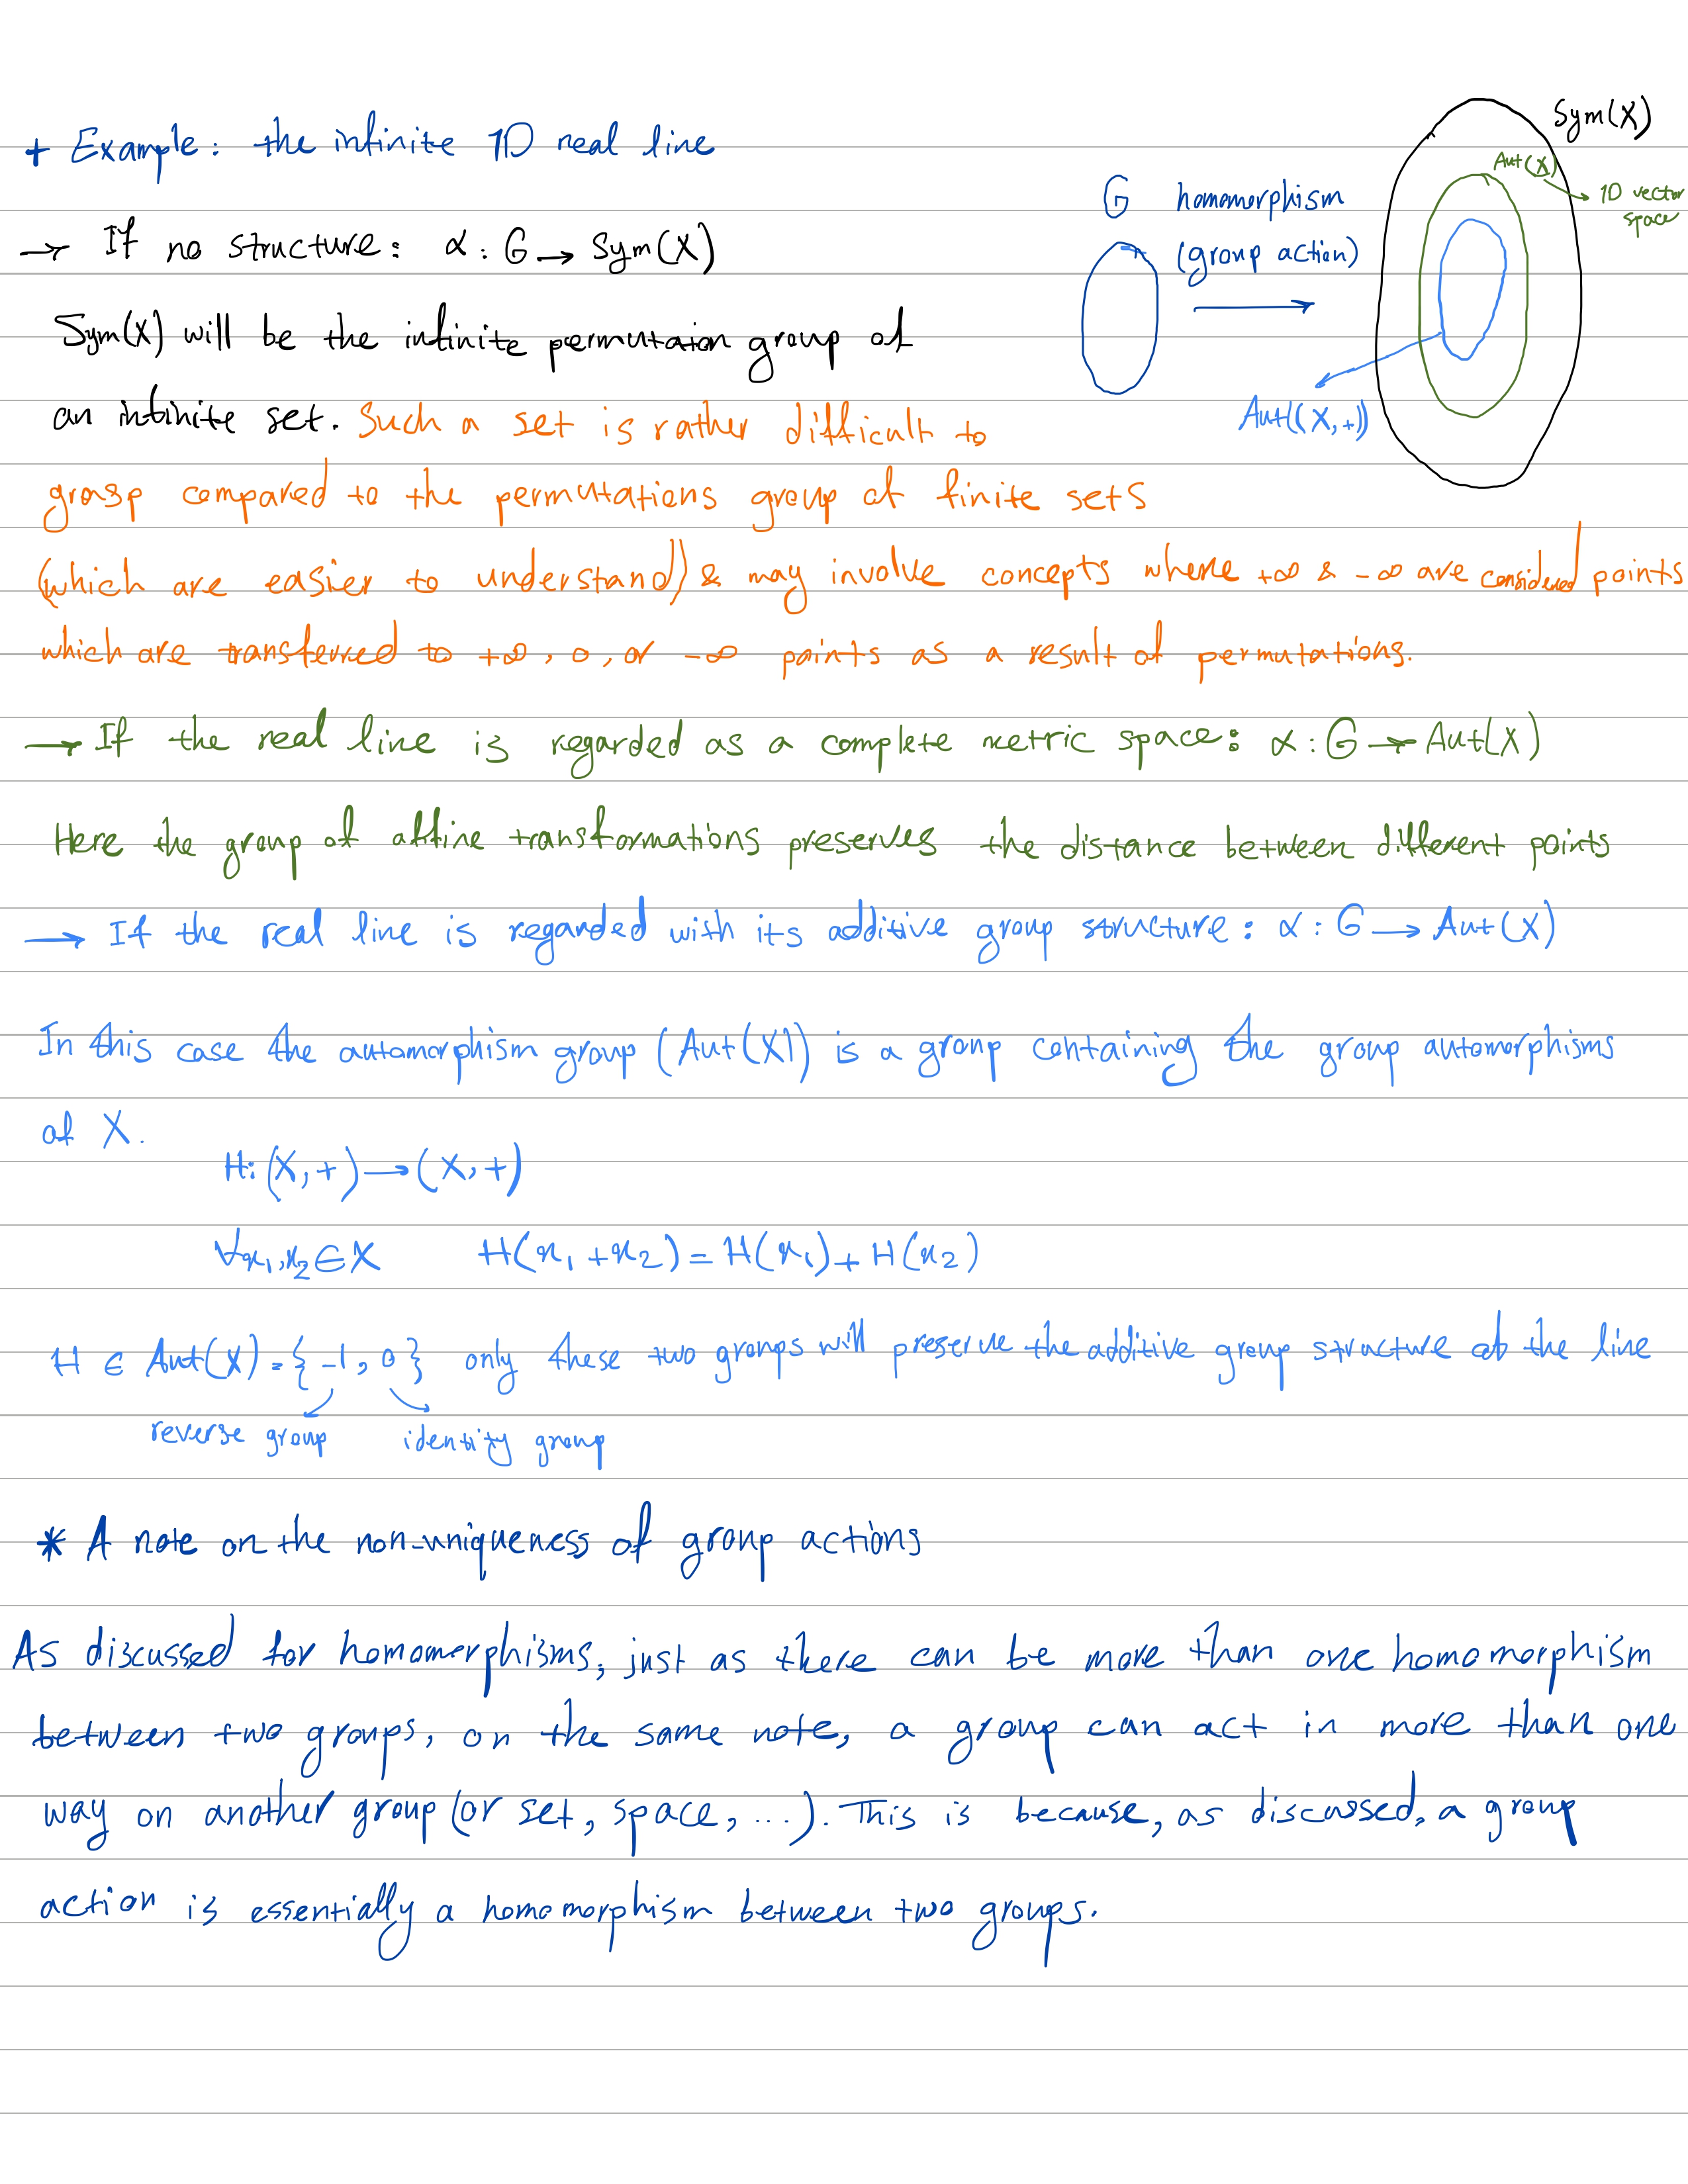 + Example: the infinite 1D real line
→ If no structure: α: G → Sym(X)
Sym(X) will be the infinite permutaion group of
an infinite set. Such a set is rather difficult to
grasp compared to the permutations group of finite sets
(which are easier to understand) & may involve concepts where +∞ & -∞ are considered points
which are transferred to +∞, 0, or -∞ points as a result of permutations.
G homomorphism
(group action)
Sym(X)
Aut(X)
1D vector
space
Aut((X,+))
→ If the real line is regarded as a complete metric space: α: G → Aut(X)
Here the group of affine transformations preserves the distance between different points
→ If the real line is regarded with its additive group structure: α: G → Aut(X)
In this case the automorphism group (Aut(X)) is a group containing the group automorphisms
of X.
H: (X,+) → (X,+)
∀x₁,x₂ ∈ X H(x₁+x₂) = H(x₁) + H(x₂)
H ∈ Aut(X) = {-1, 0} only these two groups will preserve the additive group structure of the line
reverse group identity group
* A note on the non-uniqueness of group actions
As discussed for homomorphisms, just as there can be more than one homomorphism
between two groups, on the same note, a group can act in more than one
way on another group (or set, space, ...). This is because, as discussed, a group
action is essentially a homomorphism between two groups.